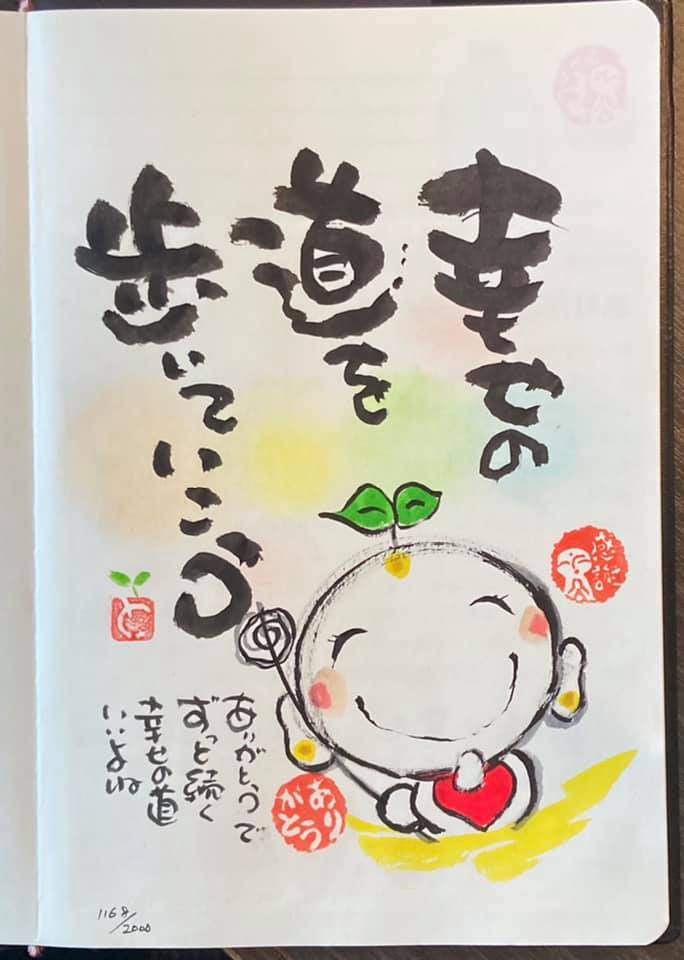 幸せの
道を
歩いていこう
感謝
ありがとうで
ずっと続く
幸せの道
いいよね
ありがとう
1168/2000